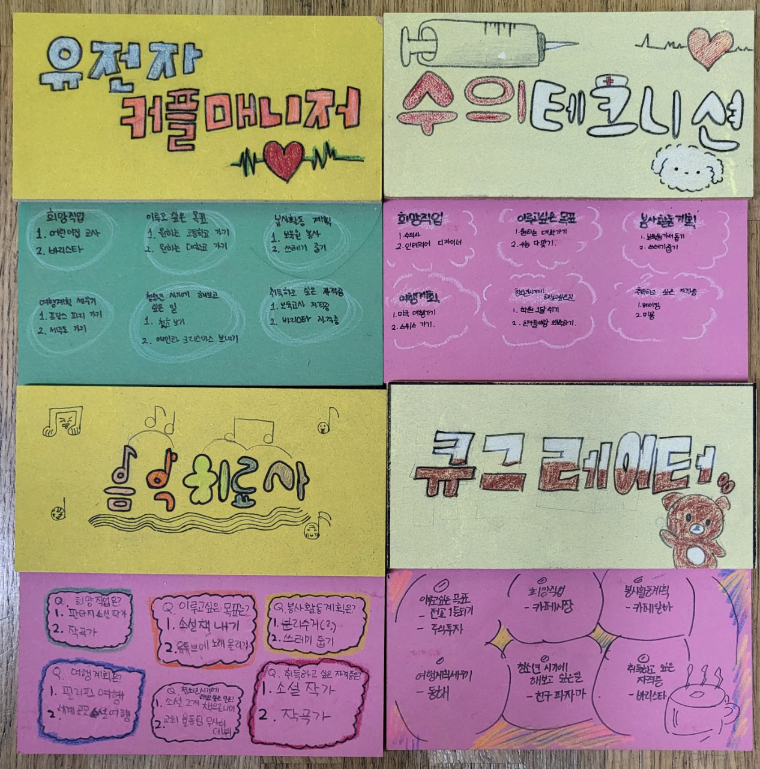 유전자
커플매니저
수의테크니션
희망직업
1. 어린이집 교사
2. 바리스타
이루고 싶은 목표
1. 원하는 고등학교 가기
2. 원하는 대학교 가기
봉사활동 계획
1. 보육원 봉사
2. 쓰레기 줍기
여행계획 세우기
1. 프랑스 파리 가기
2. 세부도 가기
청소년 시기에 해보고
싶은 일
1.
2. 애인과 크리스마스 보내기
취득하고 싶은 자격증
1. 보육교사 자격증
2. 바리스타 자격증
희망직업
1. 수의사
2. 인테리어 디자이너
이루고싶은 목표
1. 원하는 대학가기
2. 수능 다맞기.
봉사활동계획
2. 쓰레기줍기
여행계획
1. 미국 여행가기
2. 스위스 가기.
청소년시기에
취득하고 싶은 자격증
2. 미용
음악치료사
큐그레이터
Q. 희망직업은?
1. 판타지소설 작가
2. 작곡가
Q. 이루고싶은 목표은?
1. 소설책 내기
2. 유튜브에 노래 올리기
Q. 봉사활동계획은?
1. 분리수거(?)
2. 쓰레기 줍기
Q. 여행계획은?
1. 필리핀 여행
2. 세계 곳곳 여행
Q. 청소년 시기에
1. 소설
2.
Q. 취득하고 싶은 자격증은?
1. 소설 작가
2. 작곡가
이루고싶은 목표
- 전교 1등하기
- 주식투자
희망직업
- 카페사장
봉사활동계획
여행계획세우기
- 동해
청소년 시기에
해보고 싶은일
- 친구 파자마
취득하고 싶은
자격증
- 바리스타